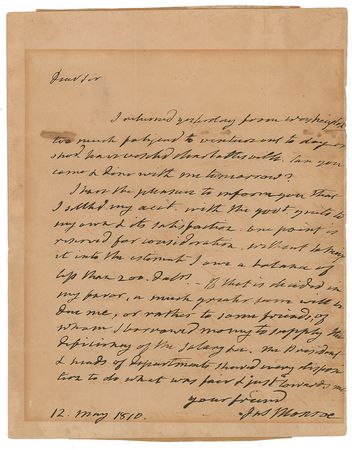 Dear Sir
I returned yesterday from
too much fatigued to venture out to day or
shod. have
come & dine with me tomorrow?
I have the pleasure to inform you that
I settled my acct. with the govt. quite to
my own & its satisfaction. one point is
reserved for consideration, without taking
it into the estimate I owe a balance of
less than 200. Dolrs. If that is decided in
my favor, a much greater sum will be
due me, or rather to some friends, of
whom I borrowed money to supply the
deficiency of the salary &c. The President
& heads of departments shewed every dispos
tion to do what was fair & just towards me
your friend
Jas Monroe
12. May 1810.